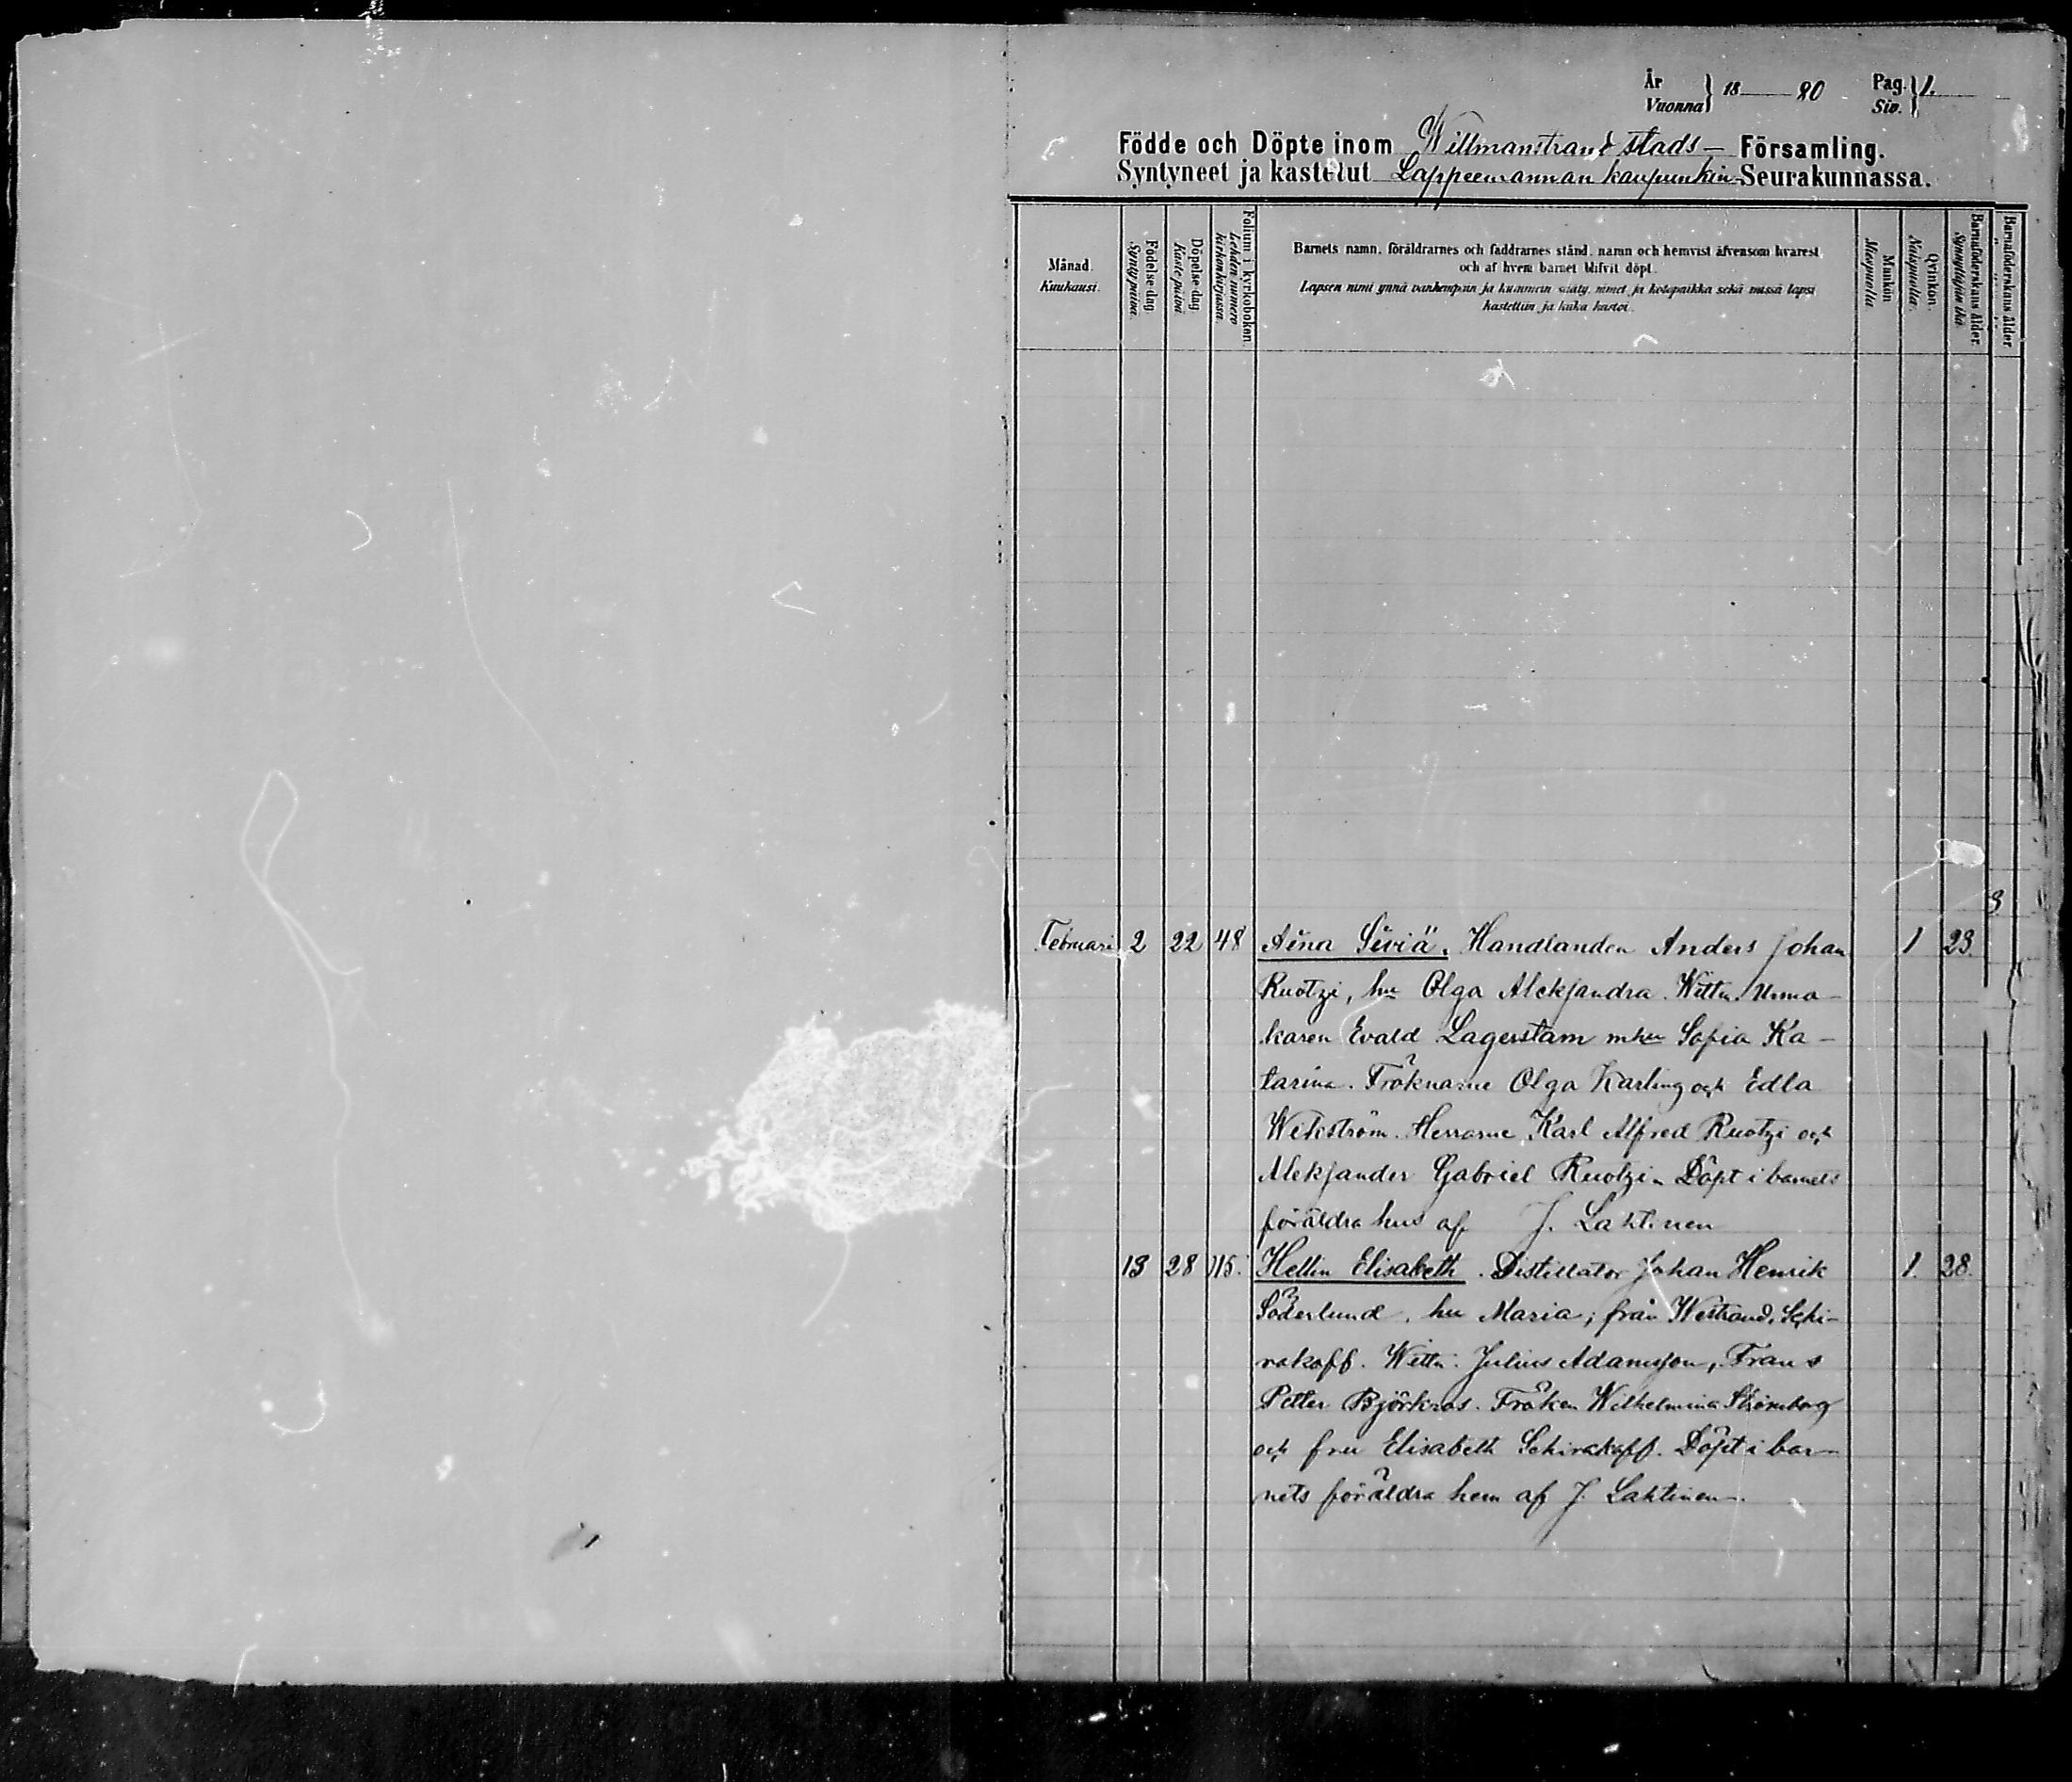 År
Vuonna } 18 80 Pag. Siv. } 1.
Födde och Döpte inom Willmanstrand stads – Församling.
Syntyneet ja kastetut Lappeenrannan kaupunkin Seurakunnassa.
Månad.
Kuukausi.
Födelse-dag.
Syntypäivä.
Döpelse-dag.
Kastepäivä
Folium i kyrkoboken.
Lehden numero kirkonkirjassa.
Barnets namn, föräldrarnes och faddrarnes stånd, namn och hemvist äfvensom hvarest
och af hvem barnet blifvit döpt.
Lapsen nimi ynnä vanhempain ja kummein sääty, nimet ja kotopaikka sekä missä lapsi
kastettiin ja kuka kastoi.
Mankön
Miespuolia.
Qvinkön.
Naispuolia.
Barnaföderskans ålder.
Synnyttäjän ikä.
Barnaföderskans ålder
Februari 2 22 48 Aina Siviä. Handlanden Anders Johan 1 23.
Ruotzi, hu Olga Aleksandra. Wittn. Urma-
karen Evald Lagerstam m hu Sofia Ka-
tarina. Fröknarne Olga Karling och Edla
Wekström. Herrarne Karl Alfred Ruotzi och
Aleksander Gabriel Ruotzi. Döpt i barnets
föräldra hus af J. Lahtinen
13 28 115. Hellin Elisabeth. Distillator Johan Henrik 1. 28.
Söderlund, hu Maria; från Wstrand, Schi-
rakoff. Wittn: Julius Adamsson, Frans
Petter Björkros. Fröken Wilhelmina Strömborg
och fru Elisabeth Schirakoff. Döpt i bar-
nets föräldra hem af J. Lahtinen.